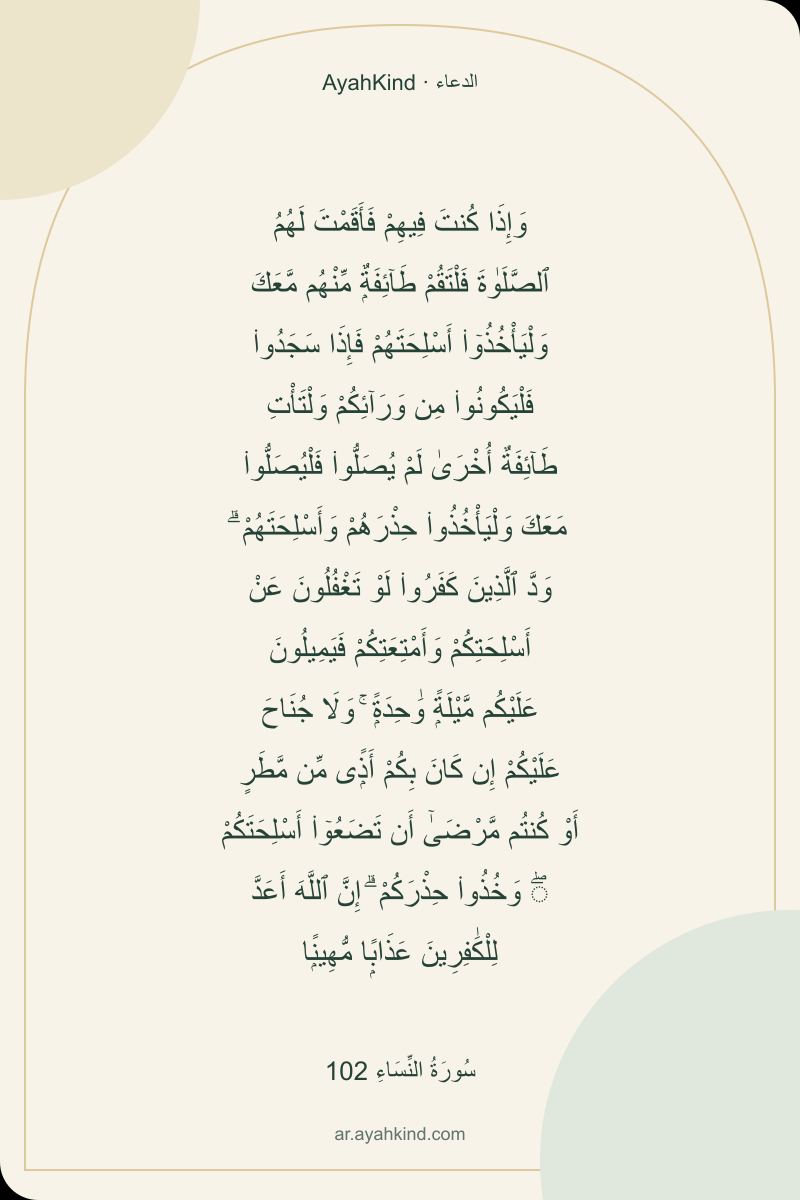 AyahKind · الدعاء
وَإِذَا كُنتَ فِيهِمْ فَأَقَمْتَ لَهُمُ
ٱلصَّلَوٰةَ فَلْتَقُمْ طَآئِفَةٌۭ مِّنْهُم مَّعَكَ
وَلْيَأْخُذُوٓا۟ أَسْلِحَتَهُمْ فَإِذَا سَجَدُوا۟
فَلْيَكُونُوا۟ مِن وَرَآئِكُمْ وَلْتَأْتِ
طَآئِفَةٌ أُخْرَىٰ لَمْ يُصَلُّوا۟ فَلْيُصَلُّوا۟
مَعَكَ وَلْيَأْخُذُوا۟ حِذْرَهُمْ وَأَسْلِحَتَهُمْ ۗ
وَدَّ ٱلَّذِينَ كَفَرُوا۟ لَوْ تَغْفُلُونَ عَنْ
أَسْلِحَتِكُمْ وَأَمْتِعَتِكُمْ فَيَمِيلُونَ
عَلَيْكُم مَّيْلَةًۭ وَٰحِدَةًۭ ۚ وَلَا جُنَاحَ
عَلَيْكُمْ إِن كَانَ بِكُمْ أَذًۭى مِّن مَّطَرٍ
أَوْ كُنتُم مَّرْضَىٰٓ أَن تَضَعُوٓا۟ أَسْلِحَتَكُمْ
ۖ وَخُذُوا۟ حِذْرَكُمْ ۗ إِنَّ ٱللَّهَ أَعَدَّ
لِلْكَٰفِرِينَ عَذَابًۭا مُّهِينًۭا
سُورَةُ النِّسَاءِ 102
ar.ayahkind.com